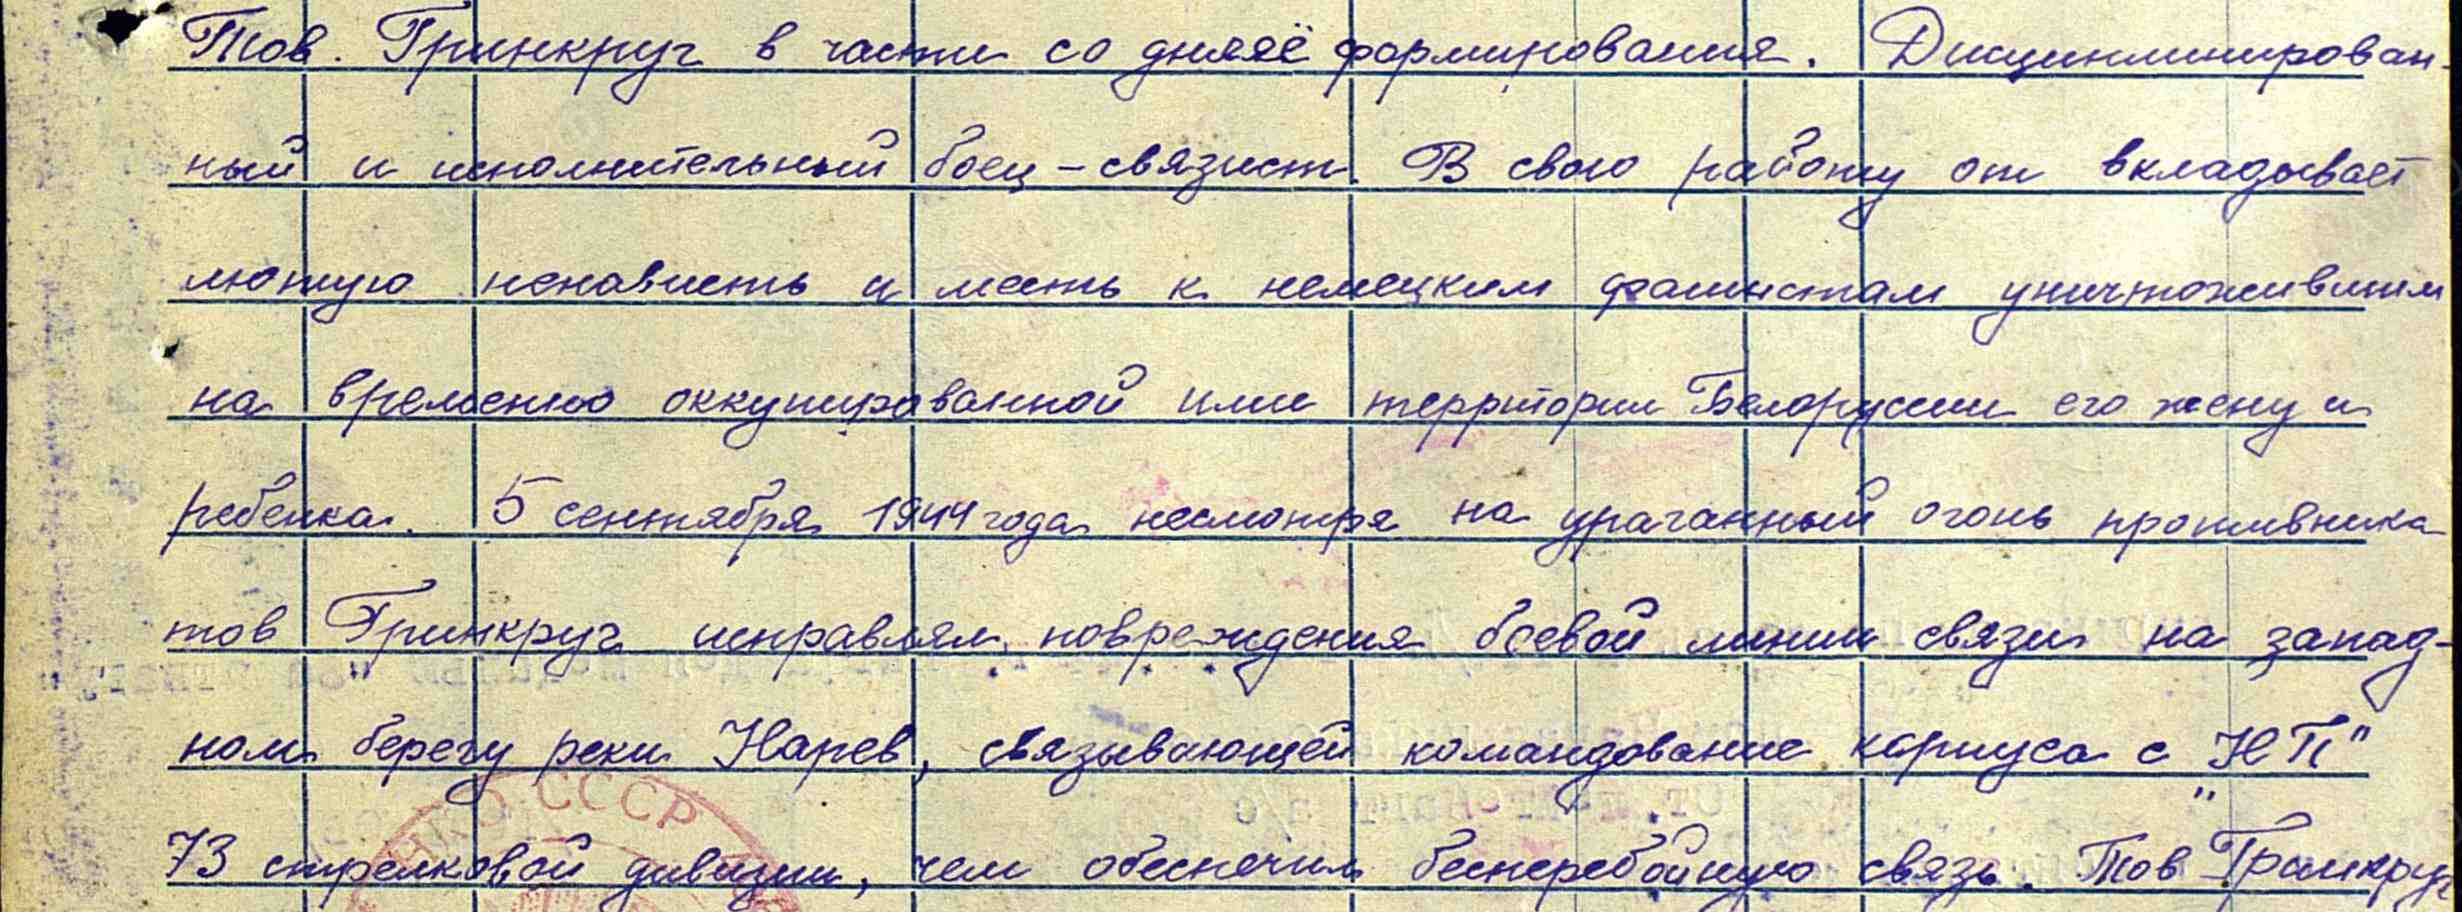 Тов. Гринкруг в части со дня её формирования. Дисциплинирован-
ный и исполнительный боец-связист. В свою работу он вкладывает
лютую ненависть и месть к немецким фашистам уничтожившим
на временно оккупированной ими территории Белоруссии его жену и
ребенка. 5 сентября 1944 года несмотря на ураганный огонь противника
тов Гринкруг исправлял повреждения боевой линии связи на запад-
ном берегу реки Нарев, связывающей командование корпуса с "НП"
73 стрелковой дивизии, чем обеспечил бесперебойную связь. Тов Гринкруг
НКО СССР